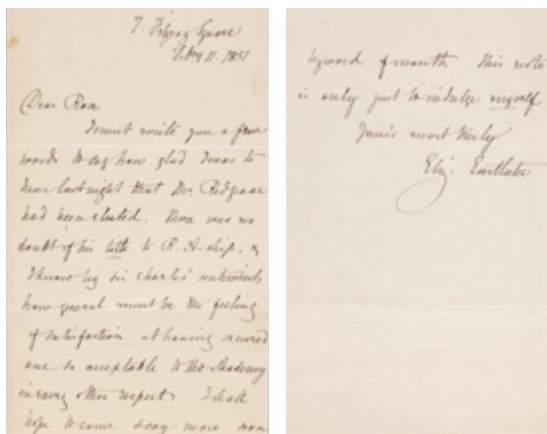 7. Fitzroy Square
Feby 11. 1851
Dear Rose
I must write you a few
words to say how glad I was to
hear last night that Mr. Redgrave
had been elected. There was no
doubt of his title to R. A-ship, &
I know by Sir Charles' sentiments
how general must be the feeling
of satisfaction at having secured
one so acceptable to the Academy
in every other respect. I shall
hope to come & say more
by word of mouth this note
is only just to indulge myself
Yours most truly
Eliz. Eastlake